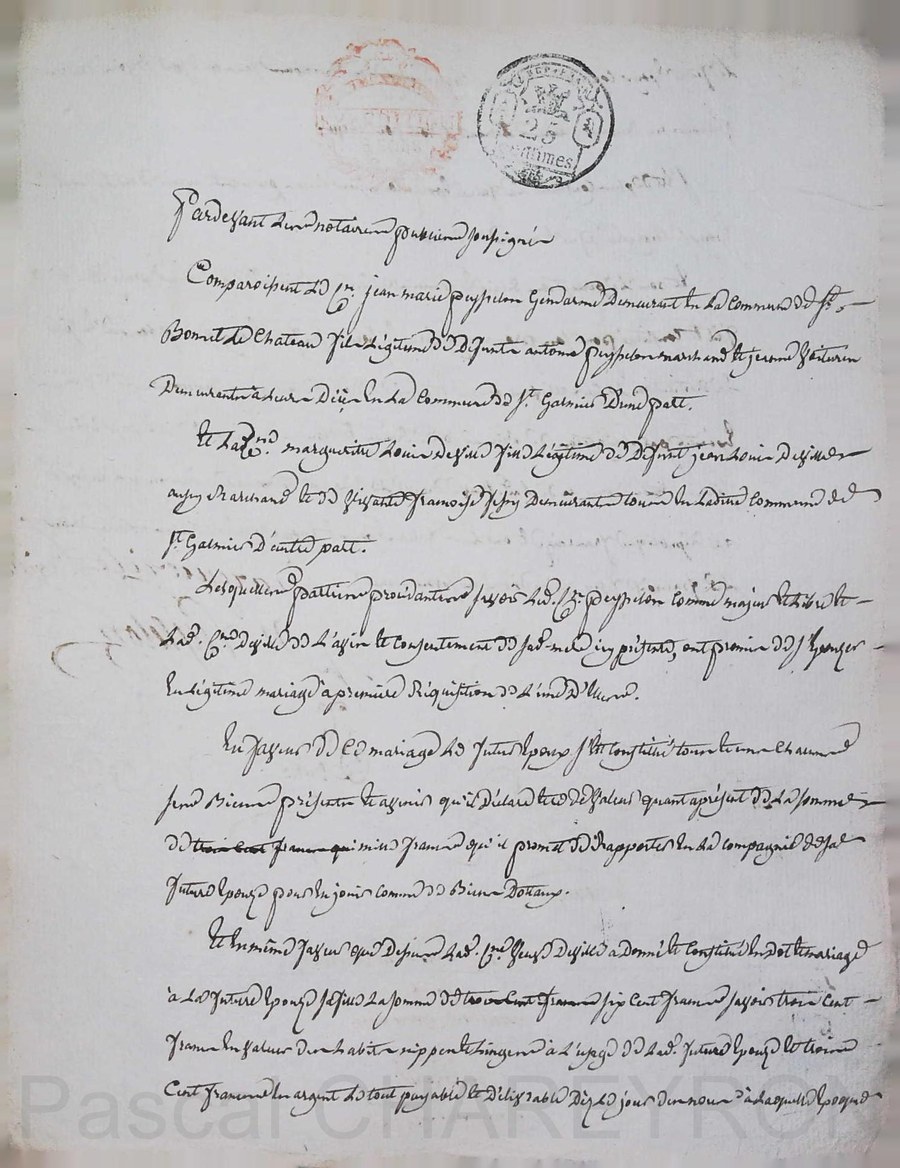 REP. FRA.
25
centimes
Pardevant les notaires publics soussignés
Comparoissent le Cn. jean marie peysselon Gendarme Demeurant en La Commune de St.
Bonnet Le Chateau fils Légitime de Défunts antoine peysselon marchand et jeanne
Demeurants à Leurs Décès en La Commune de St. Galmier D'une part.
et La Cne. marguerite Louise fille Légitime de Défunt jean Louis
aussy Marchand et de vivante françoise Demeurante toutes en Ladite Commune de
St. Galmier D'autre part.
Lesquelles parties procédantes savoir Led. Cn. peysselon comme majeur et Libre et
Lad. Cne. de L'avis et Consentement de sad. mere icy présente, ont promis de s'Epouser
En Légitime mariage à première Réquisition de L'une D'Elles.
En faveur de Ce mariage Le futur Epoux s'est Constitué tous et uns Chacuns
ses Biens présents et avenir qu'il déclare etre de valeur quant aprésent de La Somme
de trois Cent francs qu mille francs qu'il promet de Rapporter En La Compagnie de sa
future Epouse pour En jouir comme de Biens Dotaux.
Et En même faveur que Dessus Lad. Cne. Veuve a Donné et Constitué En Dot et mariage
à La future Epouse sa fille La somme de trois Cent francs six Cent francs savoir trois Cent
francs En valeur des habits nippes et Linges à L'usage de Lad. future Epouse et trois
Cent francs En argent Le tout payable et Délivrable Dez Le jour des noces à Laquelle Epoque
Pascal CHAREYRON